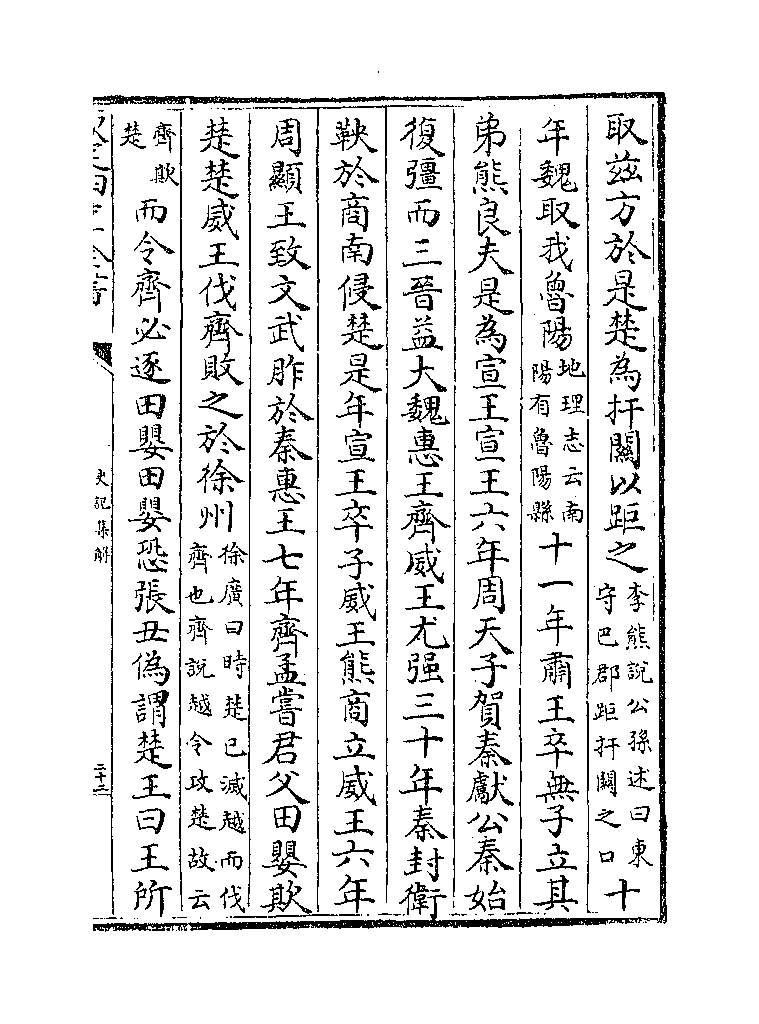 取兹方於是楚為扞關以距之李熊說公孫述曰東守巴郡距扞關之口十
年魏取我魯陽地理志云南陽有魯陽縣十一年肅王卒無子立其
弟熊良夫是為宣王宣王六年周天子賀秦獻公秦始
復彊而三晉益大魏惠王齊威王尤强三十年秦封衛
鞅於商南侵楚是年宣王卒子威王熊商立威王六年
周顯王致文武胙於秦惠王七年齊孟嘗君父田嬰欺
楚楚威王伐齊敗之於徐州徐廣曰時楚已滅越而伐齊也齊說越令攻楚故云
齊欺楚而令齊必逐田嬰田嬰恐張丑偽謂楚王曰王所
史記集解
二十三